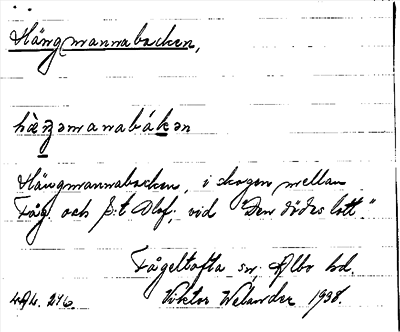 Hängmannabacken,
hàŋəmanabákən
Hängmannabacken, i skogen mellan
Fåg. och S:t Olof, vid "Den dödes lott."
Fågeltofta sn. Albo hd.
Viktor Welander 1938.